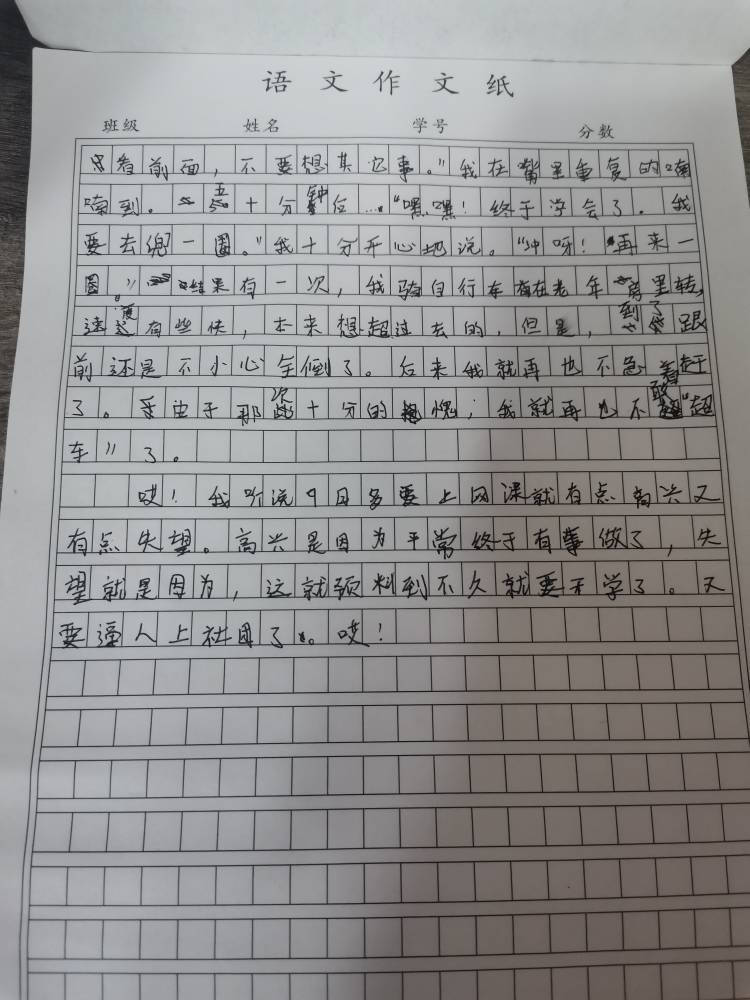 语文作文纸
班级 姓名 学号 分数
只看前面，不要想其它事。”我在嘴里重复的喃
喃到。五十分钟后…“嘿嘿！终于学会了。我
要去兜一圈。”我十分开心地说。“冲呀！再来一
圈。”结果有一次，我骑自行车在老年里转，
速度有些快，本来想超过去的，但是，到了跟
前还是不小心全倒了。后来我就再也不急着赶
了。由于那次十分的愧，我就再也不敢“超
车”了。
哎！我听说9日多要上网课就有点高兴又
有点失望。高兴是因为平常终于有事做了，失
望就是因为，这就预料到不久就要开学了。又
要逼人上社团了。哎！